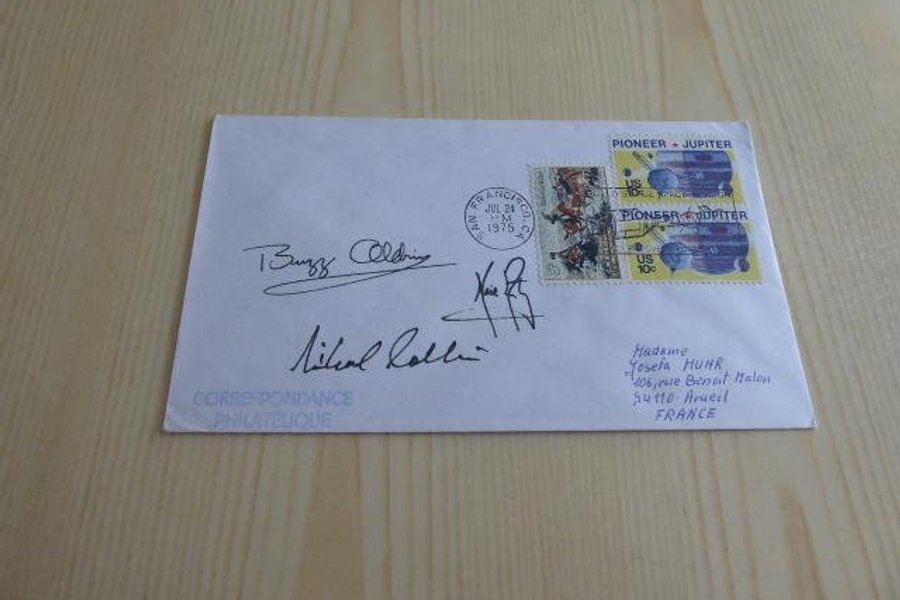 PIONEER ★ JUPITER
US
10c
PIONEER ★ JUPITER
US
10c
SAN FRANCISCO, CA
JUL 24
PM
1975
Buzz Aldrin
Michael Collins
Madame
Josefa MUHR
106, rue Benoit Malon
94110- Arcueil
FRANCE
CORRESPONDANCE
PHILATELIQUE